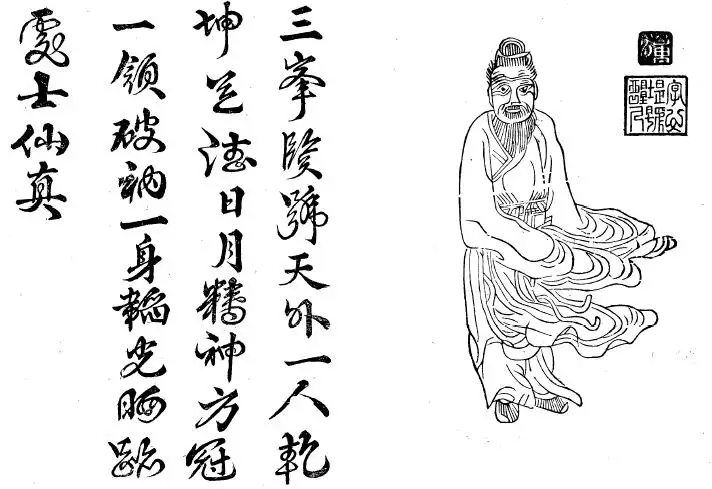 三峯號天外一人乾
坤法日月精神方冠
一領破衲一身韜光晦跡
處士仙真